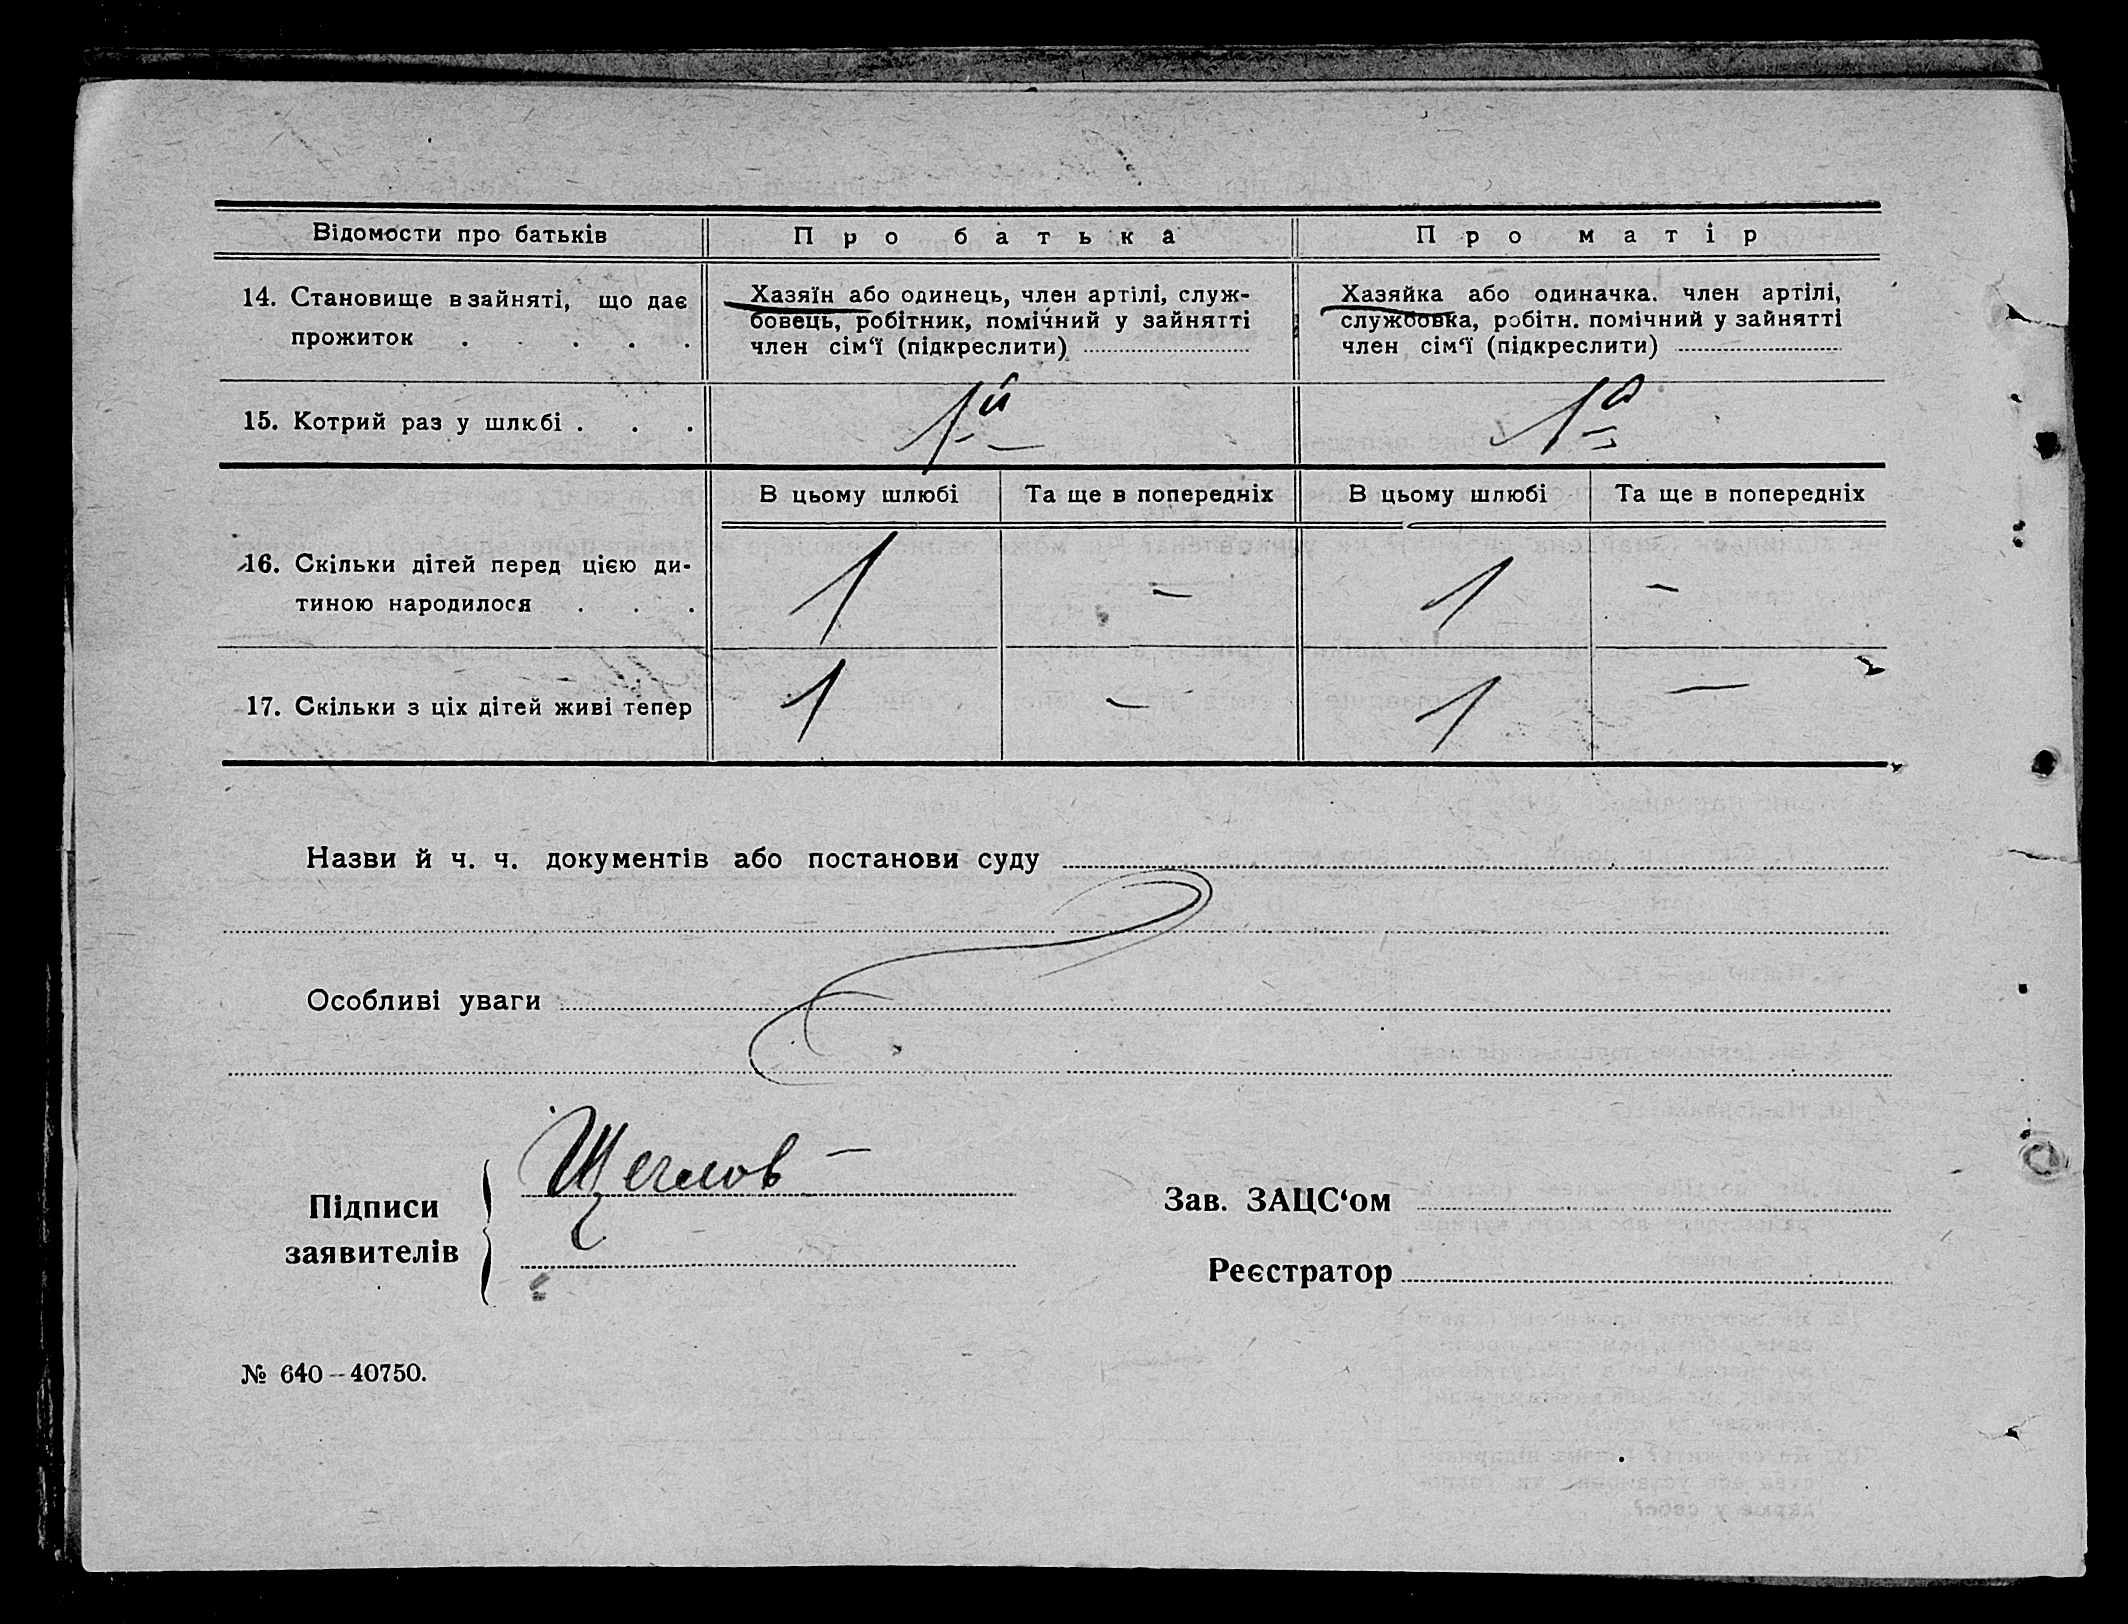 Відомости про батьків Про батька Про матір
14. Становище в зайняті, що дає
прожиток . . . . .
Хазяїн або одинець, член артілі, служ-
бовець, робітник, помічний у зайнятті
член сім‘ї (підкреслити)
Хазяйка або одиначка. член артілі,
службовка, робітн. помічний у зайнятті
член сім‘ї (підкреслити)
15. Котрий раз у шлюбі . . . 1й 1а
В цьому шлюбі Та ще в попередніх В цьому шлюбі Та ще в попередніх
16. Скільки дітей перед цією ди-
тиною народилося . . . 1 — 1 —
17. Скільки з ціх дітей живі тепер 1 — 1 —
Назви й ч. ч. документів або постанови суду
Особливі уваги
Підписи
заявителів
Щеглов —
Зав. ЗАЦС‘ом
Реєстратор
№ 640—40750.